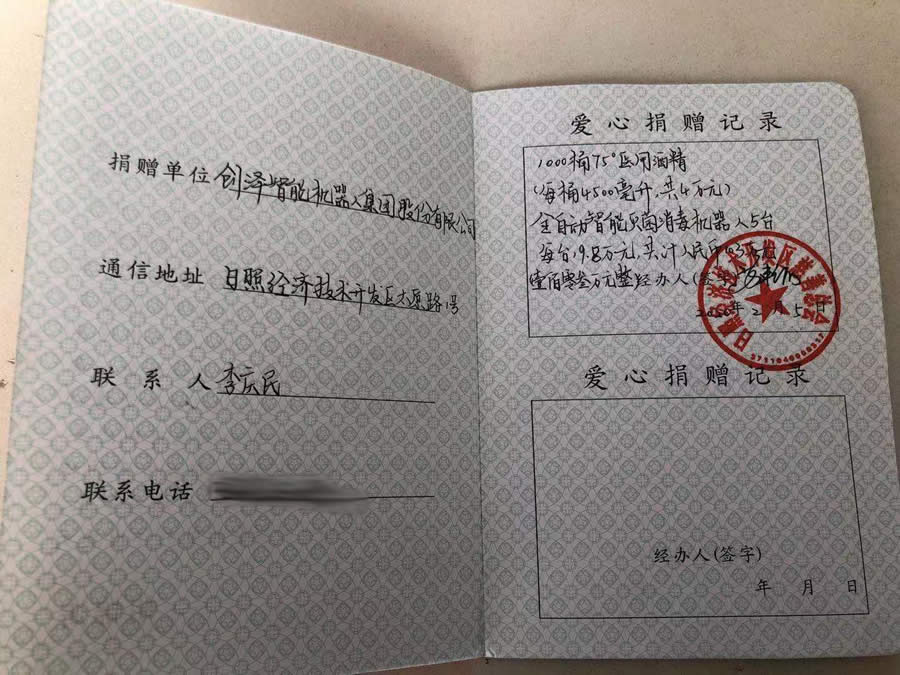 捐赠单位 创泽智能机器人集团股份有限公司
通信地址 日照经济技术开发区太原路1号
联系人 李庆民
联系电话
爱心捐赠记录
1000桶75°医用酒精
(每桶4500毫升,共4万元)
全自动智能灭菌消毒机器人5台
每台19.8万元,共计人民币
壹佰零叁万元整 经办人(签字)
2020年2月5日
日照经济技术开发区慈善总会
爱心捐赠记录
经办人(签字)
年 月 日